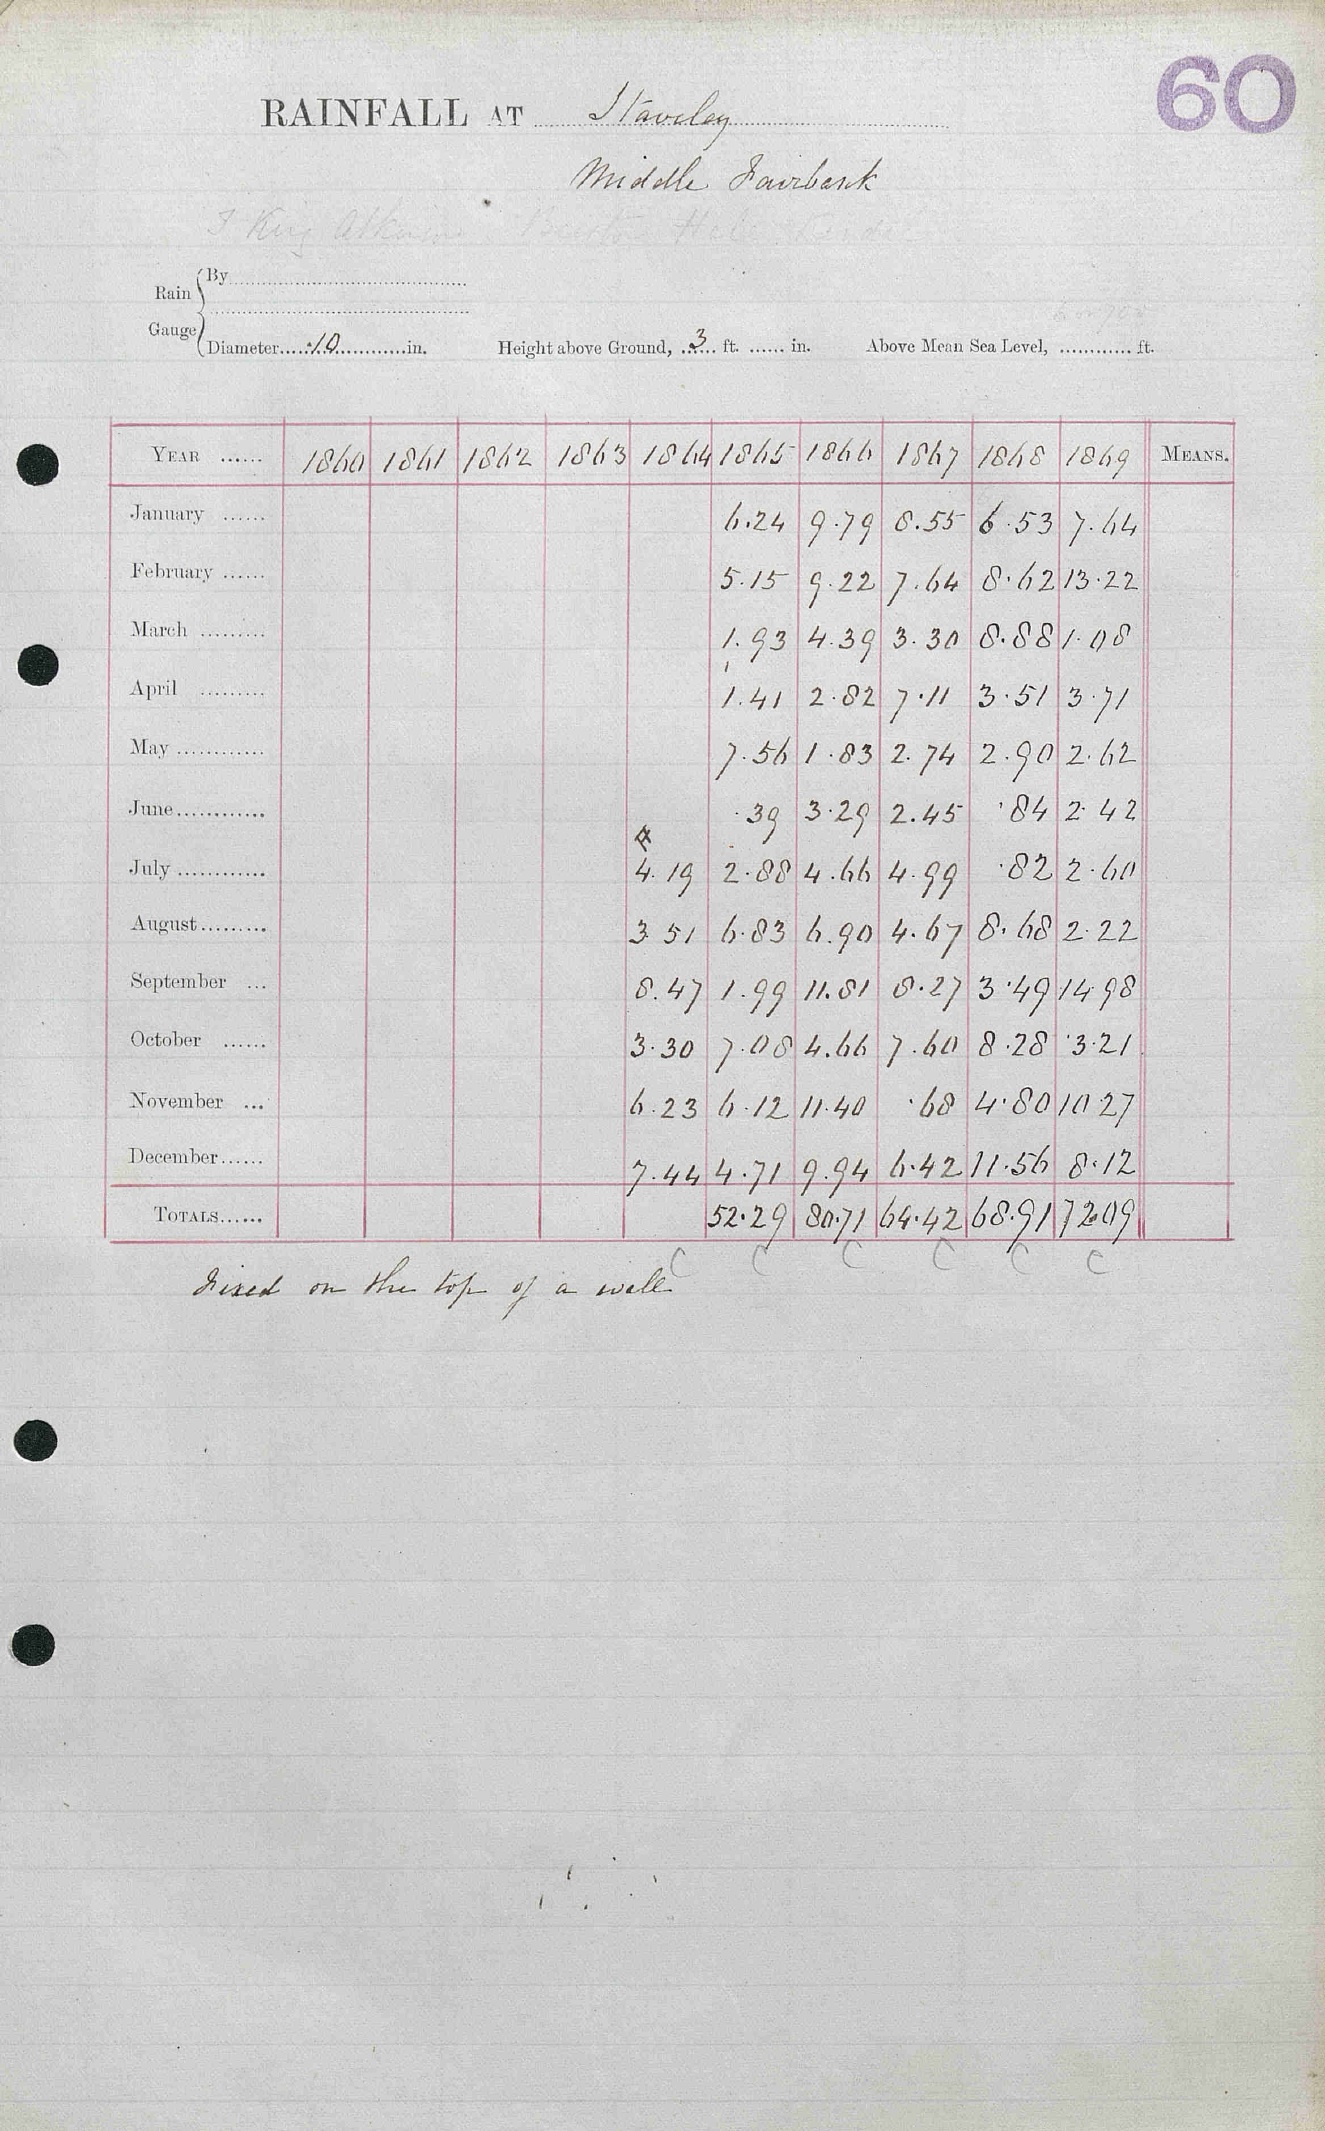 60
RAINFALL AT Staveley
Middle Fairbank
Rain Gauge
By
Diameter 10 in. Height above Ground, 3 ft. in. Above Mean Sea Level, ft.
YEAR 1860 1861 1862 1863 1864 1865 1866 1867 1868 1869 MEANS.
January 6.24 9.79 8.55 6.53 7.64
February 5.15 9.22 7.64 8.62 13.22
March 1.93 4.39 3.30 8.88 1.08
April 1.41 2.82 7.11 3.51 3.71
May 7.56 1.83 2.74 2.90 2.62
June .39 3.29 2.45 .84 2.42
July 4.19 2.88 4.66 4.99 .82 2.60
August 3.51 6.83 6.90 4.67 8.68 2.22
September 8.47 1.99 11.81 8.27 3.49 14.98
October 3.30 7.08 4.66 7.60 8.28 3.21
November 6.23 6.12 11.40 .68 4.80 10.27
December 7.44 4.71 9.94 6.42 11.56 8.12
TOTALS 52.29 80.71 64.42 68.91 72.09
C C C C C C
Fixed on the top of a wall